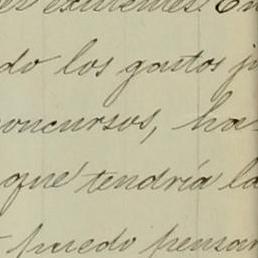 existentes. En
do los gastos j
concursos, ha-
que tendría la
puedo pensar